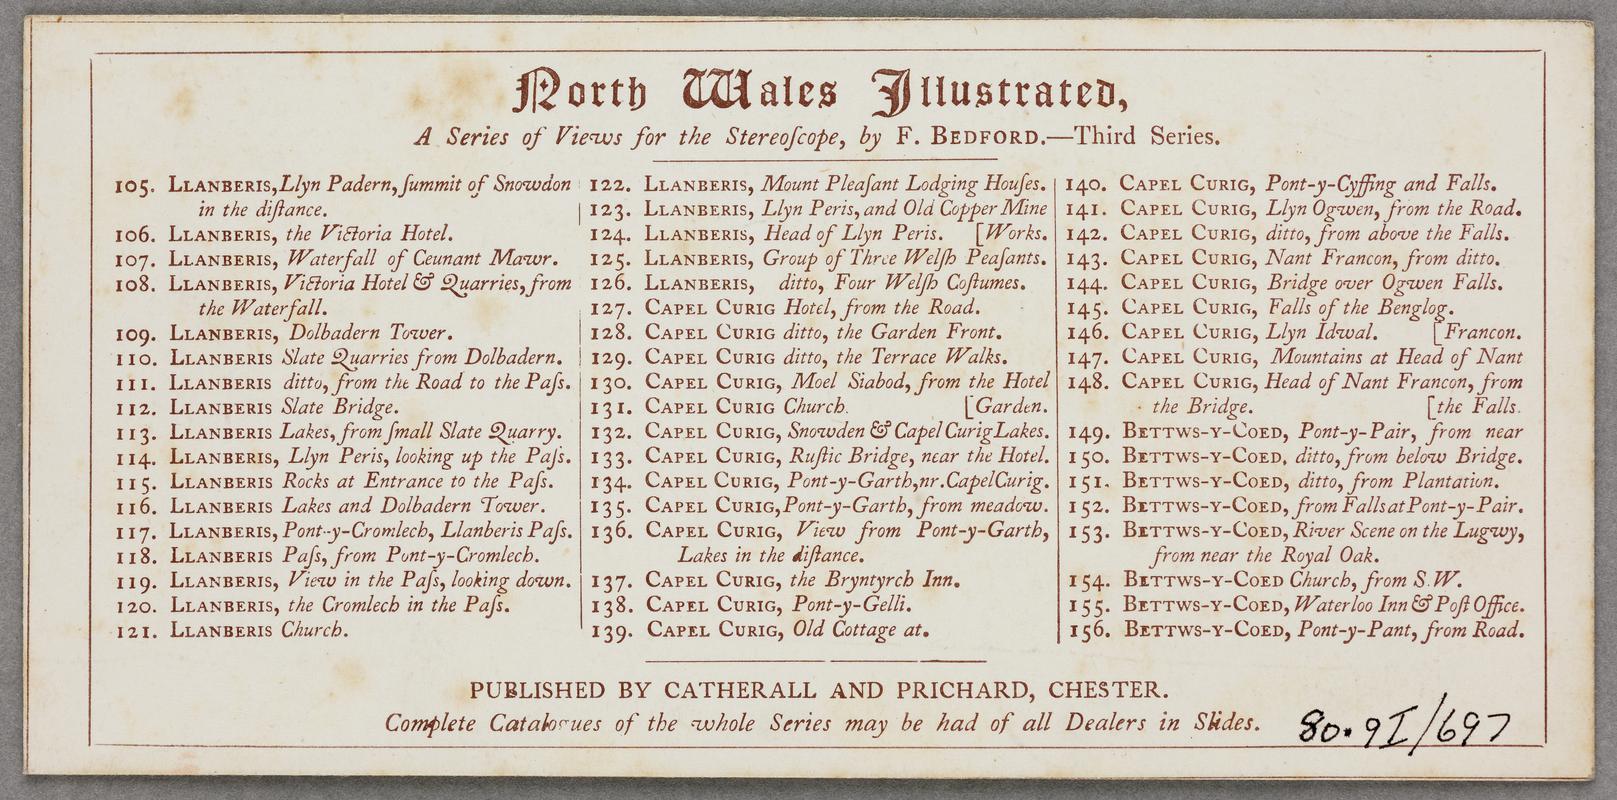 North Wales Illustrated,
A Series of Views for the Stereoſcope, by F. BEDFORD.—Third Series.
105. LLANBERIS, Llyn Padern, ſummit of Snowdon
in the diſtance.
106. LLANBERIS, the Victoria Hotel.
107. LLANBERIS, Waterfall of Ceunant Mawr.
108. LLANBERIS, Victoria Hotel & Quarries, from
the Waterfall.
109. LLANBERIS, Dolbadern Tower.
110. LLANBERIS Slate Quarries from Dolbadern.
111. LLANBERIS ditto, from the Road to the Paſs.
112. LLANBERIS Slate Bridge.
113. LLANBERIS Lakes, from ſmall Slate Quarry.
114. LLANBERIS, Llyn Peris, looking up the Paſs.
115. LLANBERIS Rocks at Entrance to the Paſs.
116. LLANBERIS Lakes and Dolbadern Tower.
117. LLANBERIS, Pont-y-Cromlech, Llanberis Paſs.
118. LLANBERIS Paſs, from Pont-y-Cromlech.
119. LLANBERIS, View in the Paſs, looking down.
120. LLANBERIS, the Cromlech in the Paſs.
121. LLANBERIS Church.
122. LLANBERIS, Mount Pleaſant Lodging Houſes.
123. LLANBERIS, Llyn Peris, and Old Copper Mine
124. LLANBERIS, Head of Llyn Peris. [Works.
125. LLANBERIS, Group of Three Welſh Peaſants.
126. LLANBERIS, ditto, Four Welſh Coſtumes.
127. CAPEL CURIG Hotel, from the Road.
128. CAPEL CURIG ditto, the Garden Front.
129. CAPEL CURIG ditto, the Terrace Walks.
130. CAPEL CURIG, Moel Siabod, from the Hotel
131. CAPEL CURIG Church. [Garden.
132. CAPEL CURIG, Snowden & Capel Curig Lakes.
133. CAPEL CURIG, Ruſtic Bridge, near the Hotel.
134. CAPEL CURIG, Pont-y-Garth, nr. Capel Curig.
135. CAPEL CURIG, Pont-y-Garth, from meadow.
136. CAPEL CURIG, View from Pont-y-Garth,
Lakes in the diſtance.
137. CAPEL CURIG, the Bryntyrch Inn.
138. CAPEL CURIG, Pont-y-Gelli.
139. CAPEL CURIG, Old Cottage at.
140. CAPEL CURIG, Pont-y-Cyffing and Falls.
141. CAPEL CURIG, Llyn Ogwen, from the Road.
142. CAPEL CURIG, ditto, from above the Falls.
143. CAPEL CURIG, Nant Francon, from ditto.
144. CAPEL CURIG, Bridge over Ogwen Falls.
145. CAPEL CURIG, Falls of the Benglog.
146. CAPEL CURIG, Llyn Idwal. [Francon.
147. CAPEL CURIG, Mountains at Head of Nant
148. CAPEL CURIG, Head of Nant Francon, from
the Bridge. [the Falls.
149. BETTWS-Y-COED, Pont-y-Pair, from near
150. BETTWS-Y-COED, ditto, from below Bridge.
151. BETTWS-Y-COED, ditto, from Plantation.
152. BETTWS-Y-COED, from Falls at Pont-y-Pair.
153. BETTWS-Y-COED, River Scene on the Lugwy,
from near the Royal Oak.
154. BETTWS-Y-COED Church, from S.W.
155. BETTWS-Y-COED, Waterloo Inn & Poſt Office.
156. BETTWS-Y-COED, Pont-y-Pant, from Road.
PUBLISHED BY CATHERALL AND PRICHARD, CHESTER.
Complete Catalogues of the whole Series may be had of all Dealers in Slides.
80.9I/697